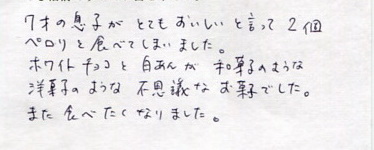 7才の息子が とてもおいしいと言って 2個
ペロリと食べてしまいました。
ホワイトチョコと白あんが 和菓子のような
洋菓子のような 不思議なお菓子でした。
また食べたくなりました。